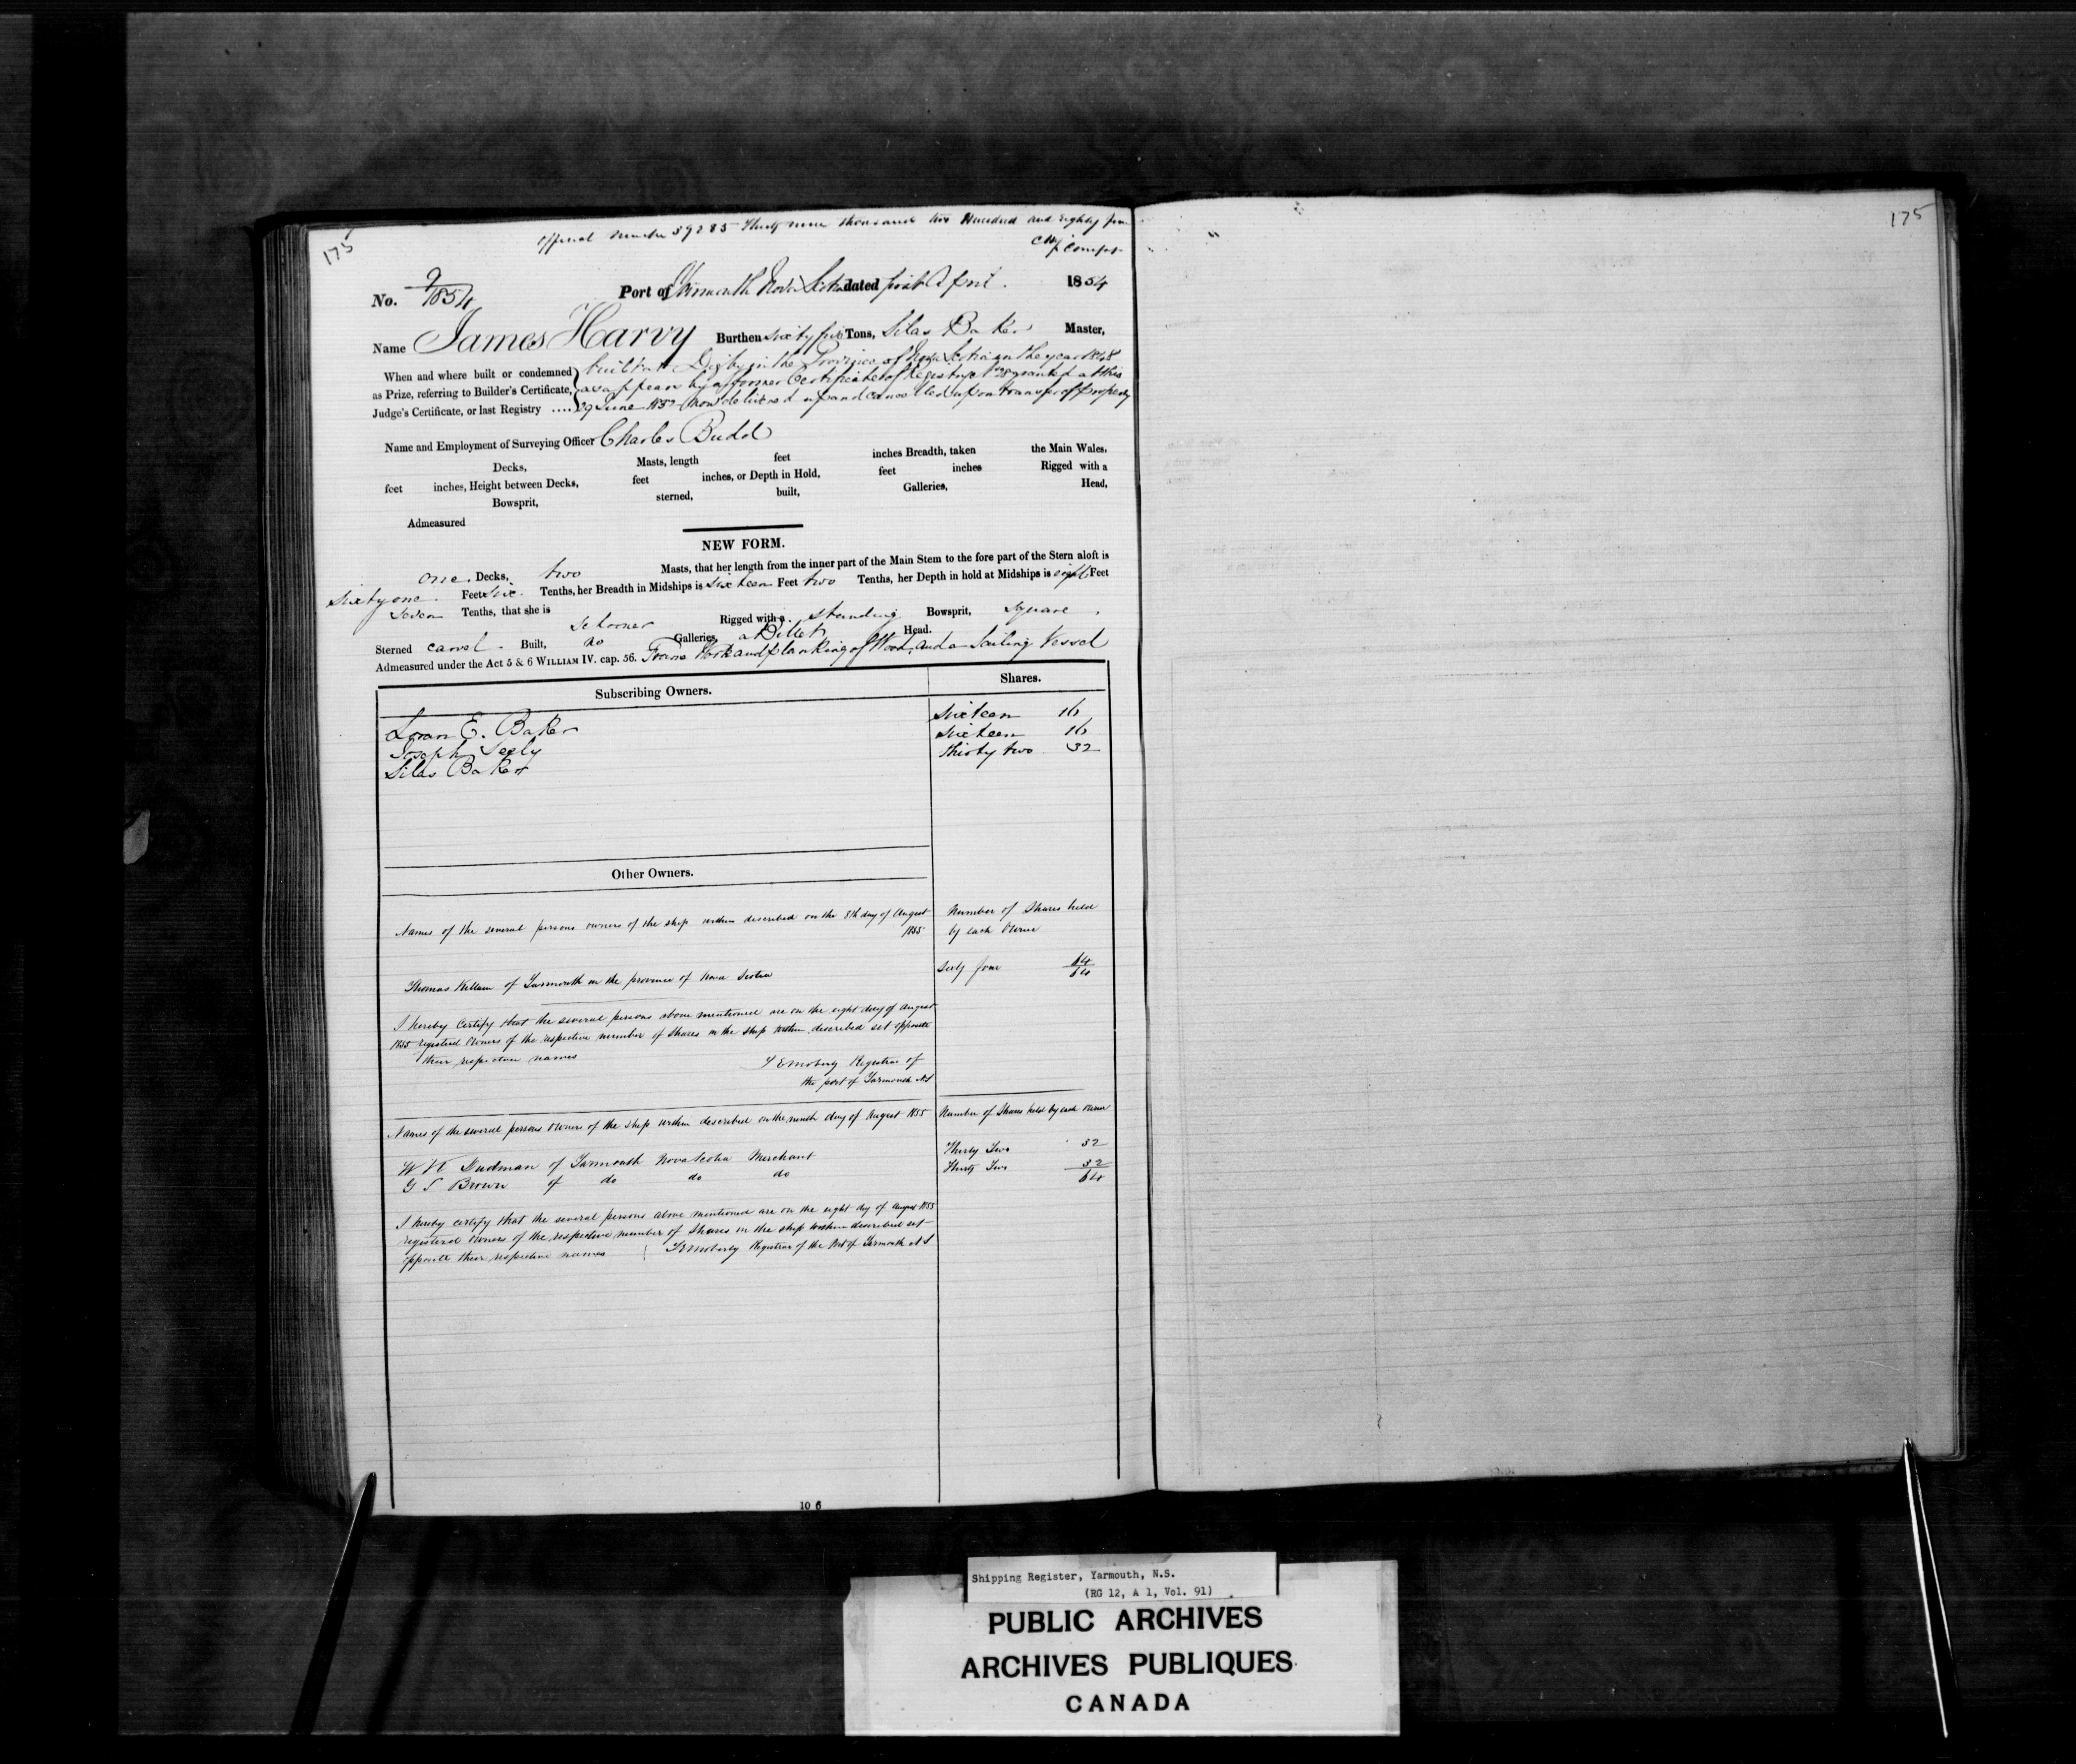 175
Official Number 39285 Thirty nine thousand two Hundred and Eighty five
175
No. 9/1854 Port of Yarmouth Nova Scotia dated first April. 1854
Name James Harvy Burthen sixty five Tons, Silas Baker Master,
When and where built or condemned as Prize, referring to Builder's Certificate, Judge's Certificate, or last Registry ....
built at Digby in the Province of Nova Scotia in the year 1848
as appears by a former Certificate of Registry No 28 granted at this
29 June 1852 now delivered up and cancelled upon transfer of property
Name and Employment of Surveying Officer Charles Budd
Decks, Masts, length feet inches Breadth, taken the Main Wales,
feet inches, Height between Decks, feet inches, or Depth in Hold, feet inches Rigged with a
Bowsprit, sterned, built, Galleries, Head,
Admeasured
NEW FORM.
one. Decks, two Masts, that her length from the inner part of the Main Stem to the fore part of the Stern aloft is
sixty one. Feet six. Tenths, her Breadth in Midships is sixteen Feet two Tenths, her Depth in hold at Midships is eight Feet
seven Tenths, that she is schooner Rigged with a. standing Bowsprit, square.
Sterned carvel. Built, no Galleries, a Billet Head.
Admeasured under the Act 5 & 6 WILLIAM IV. cap. 56. Frame Work and planking of Wood, and a Sailing Vessel
Subscribing Owners. Shares.
Loran E. Baker sixteen 16
Joseph Seely sixteen 16
Silas Baker thirty two 32
Other Owners.
Names of the several persons owners of the ship within described on the 8th day of August 1855 Number of Shares held by each Owner
Thomas Killam of Yarmouth in the province of Nova Scotia Sixty four 64/64
I hereby certify that the several persons above mentioned are on the eight day of August
1855 registered owners of the respective number of Shares in the ship within described set opposite
their respective names
Registrar of
the port of Yarmouth NS
Names of the several persons owners of the ship within described on the ninth day of August 1855 Number of Shares held by each owner
W K Dudman of Yarmouth Nova Scotia Merchant Thirty Two 32
G S Brown of do do do Thirty Two 32
64
I hereby certify that the several persons above mentioned are on the eight day of August 1855
registered owners of the respective number of Shares in the ship within described set
opposite their respective names Registrar of the Port of Yarmouth N S
10 6
Shipping Register, Yarmouth, N.S.
(RG 12, A 1, Vol. 91)
PUBLIC ARCHIVES
ARCHIVES PUBLIQUES
CANADA